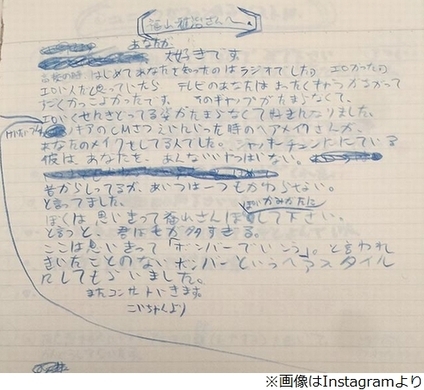 福山雅治さんへ
あなたが
大好きです
高校の時はじめてあなたを知ったのはラジオでした。エロかった。
エロい人だと思っていたら テレビのあなたはまったくキャラがちがって
すごくかっこよかったです。そのギャップがたまらなくて、
エロいくせにきどってる姿がたまらなくて好きになりました。
ノキアのCMさつえいにいった時のヘアメイクさんが、
あなたのメイクをしてる人でした。ジャッキーチェンににている
彼は、あなたを、あんないいやつはいない。
昔からしってるが、あいつは一つもかわらない。
と言ってました。
ぼくは思いきって福山さんぽいかみがたにして下さい。
と言うと、君は毛が多すぎる。
ここは思いきって「ボンバーでいこう」。と言われ
きいたことのないボンバーというヘアスタイル
にしてもらいました。
またコンサートいきます。
こいちゃくより
※画像はInstagramより